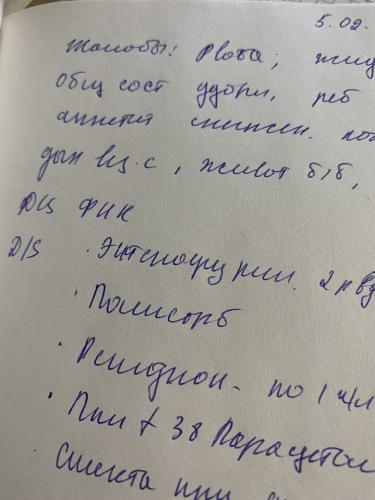 5.02.
Жалобы: Рвота; жид
общ сост удовл, реб
аппетит снижен. кож
дых вез. с, живот б/б,
ДЦ ФНК
D/S · Энтерофурил. 2 р в д
· Полисорб
· Регидрон - по 1 ч/л
· При t 38 Парацетом
Смекта при